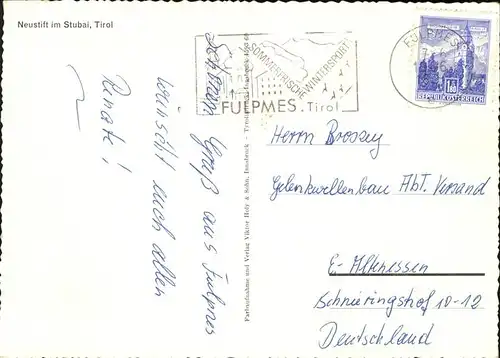 Neustift im Stubai, Tirol
SOMMERFRISCHE
WINTERSPORT
FULPMES. Tirol
FULPMES
REPUBLIK ÖSTERREICH
Schönen Gruß aus Fulpmes
wünscht euch allen
Renate!
Farbaufnahme und Verlag Viktor Holz & Sohn, Innsbruck
Herrn Brossey
Gelenkwellenbau Abt. Versand
E-Altenessen
Schnieringshof 10-12
Deutschland